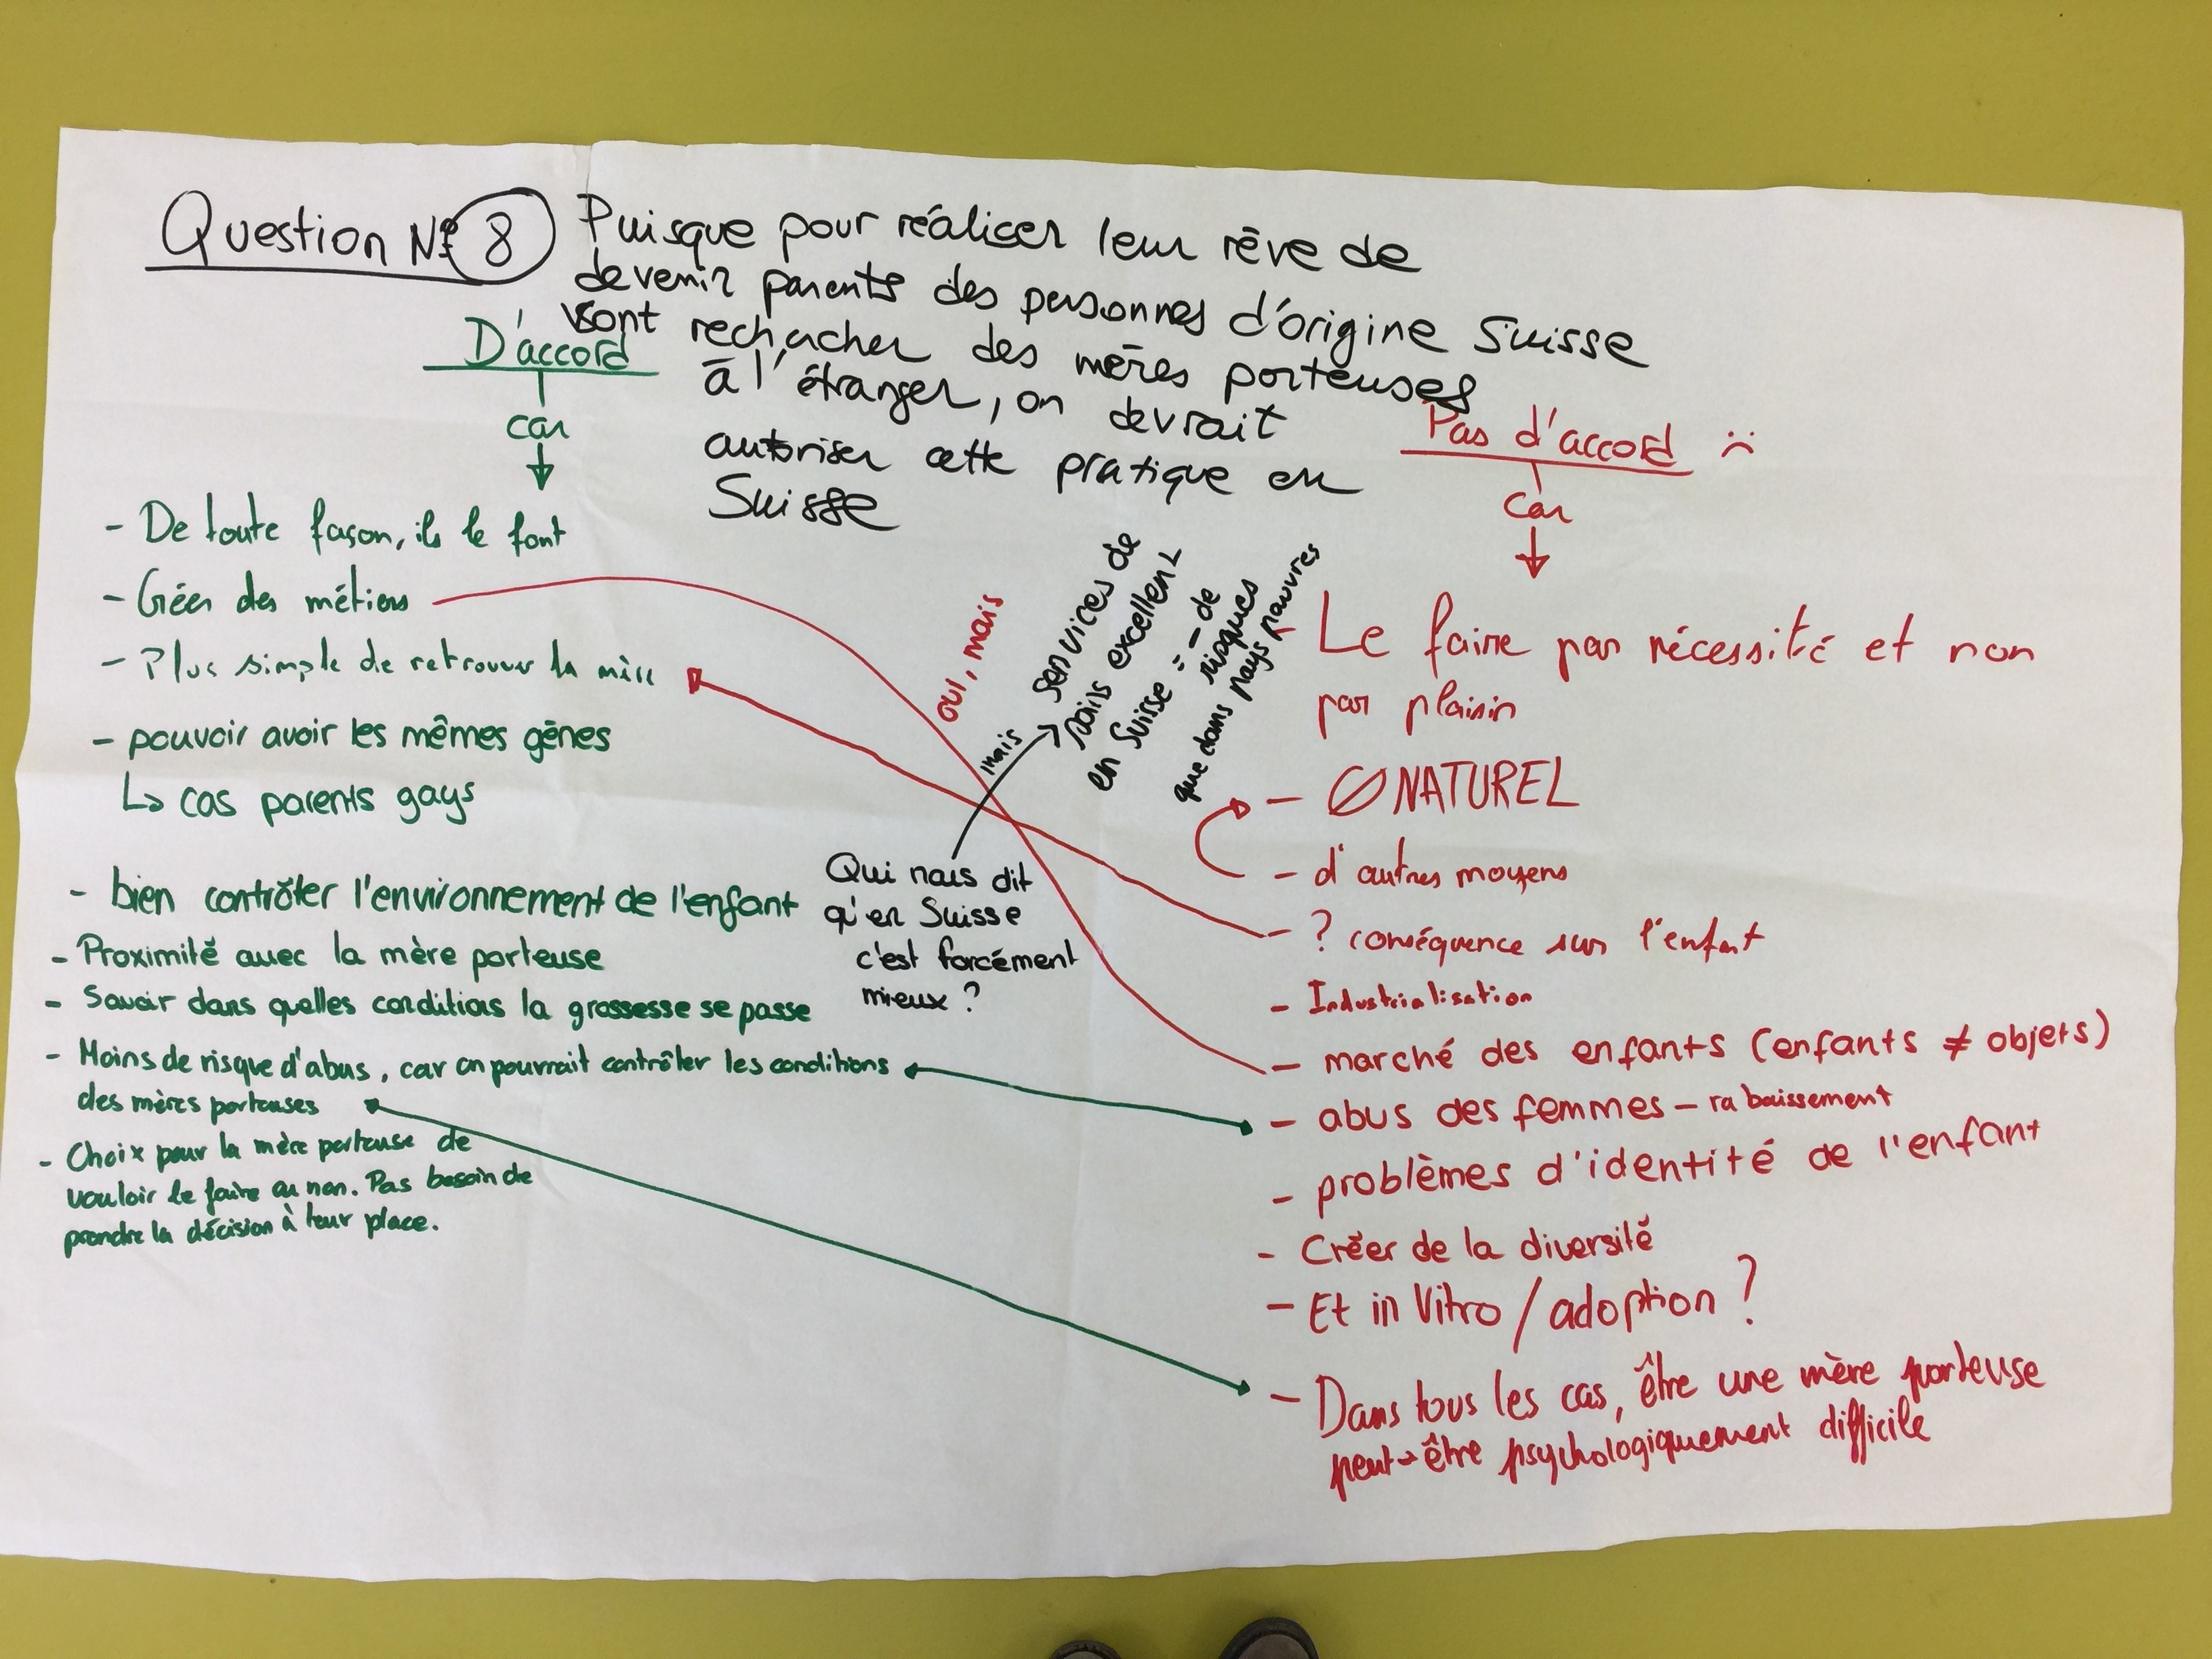 Question N° 8
Puisque pour réaliser leur rêve de
devenir parents des personnes d'origine Suisse
vont rechercher des mères porteuses
à l'étranger, on devrait
autoriser cette pratique en
Suisse
D'accord
car
- De toute façon, ils le font
- Créer des métiers
- Plus simple de retrouver la mère
- pouvoir avoir les mêmes gènes
↳ cas parents gays
- bien contrôler l'environnement de l'enfant
- Proximité avec la mère porteuse
- Savoir dans quelles conditions la grossesse se passe
- Moins de risque d'abus, car on pourrait contrôler les conditions
des mères porteuses
- Choix pour la mère porteuse de
vouloir le faire ou non. Pas besoin de
prendre la décision à leur place.
oui, mais
Qui nous dit
qu'en Suisse
c'est forcément
mieux ?
mais
services de
soins excellent
en Suisse = - de
risques
que dans pays pauvres
Pas d'accord :(
car
- Le faire par nécessité et non
par plaisir
- Ø NATUREL
- d'autres moyens
- ? conséquence sur l'enfant
- Industrialisation
- marché des enfants (enfants ≠ objets)
- abus des femmes - rabaissement
- problèmes d'identité de l'enfant
- Créer de la diversité
- Et in Vitro / adoption ?
- Dans tous les cas, être une mère porteuse
peut-être psychologiquement difficile